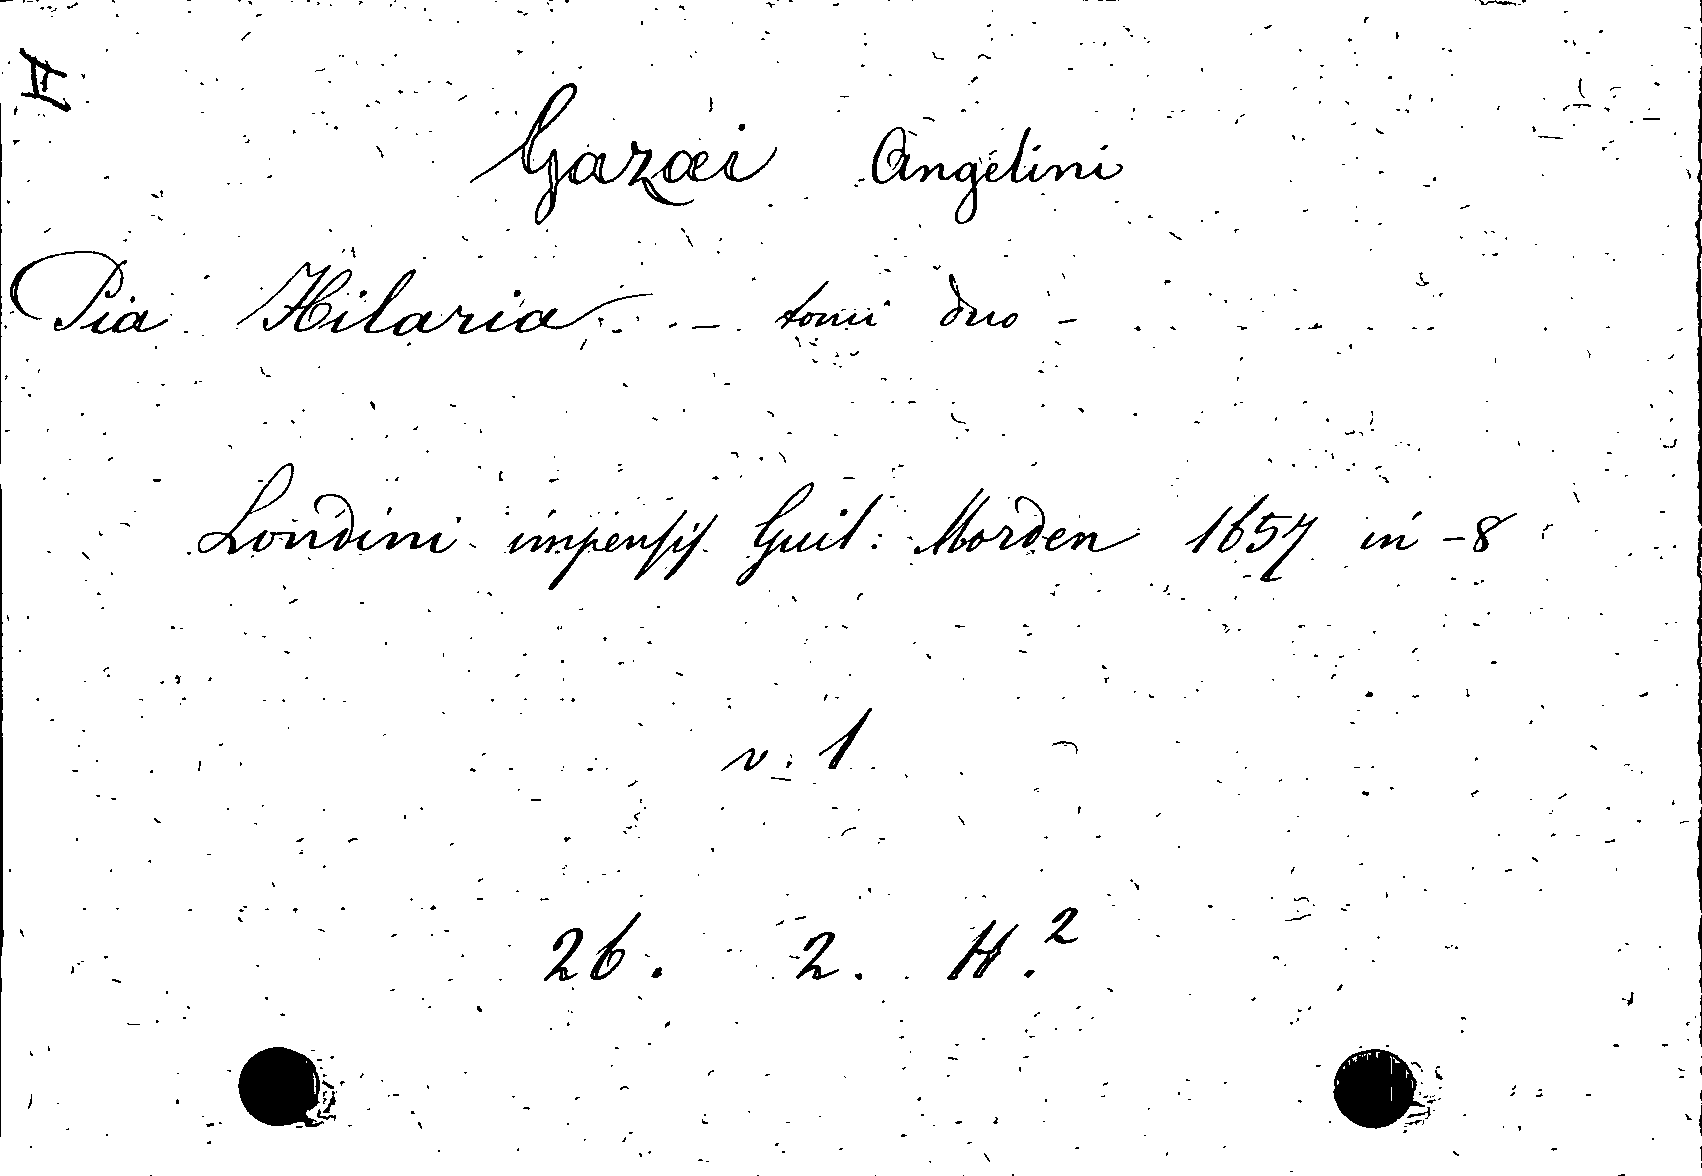 Gazæi Angelini
Pia Hilaria - tomi duo -
Londini impensis Guil: Morden 1657 in -8
v. 1
26. 2. H.²